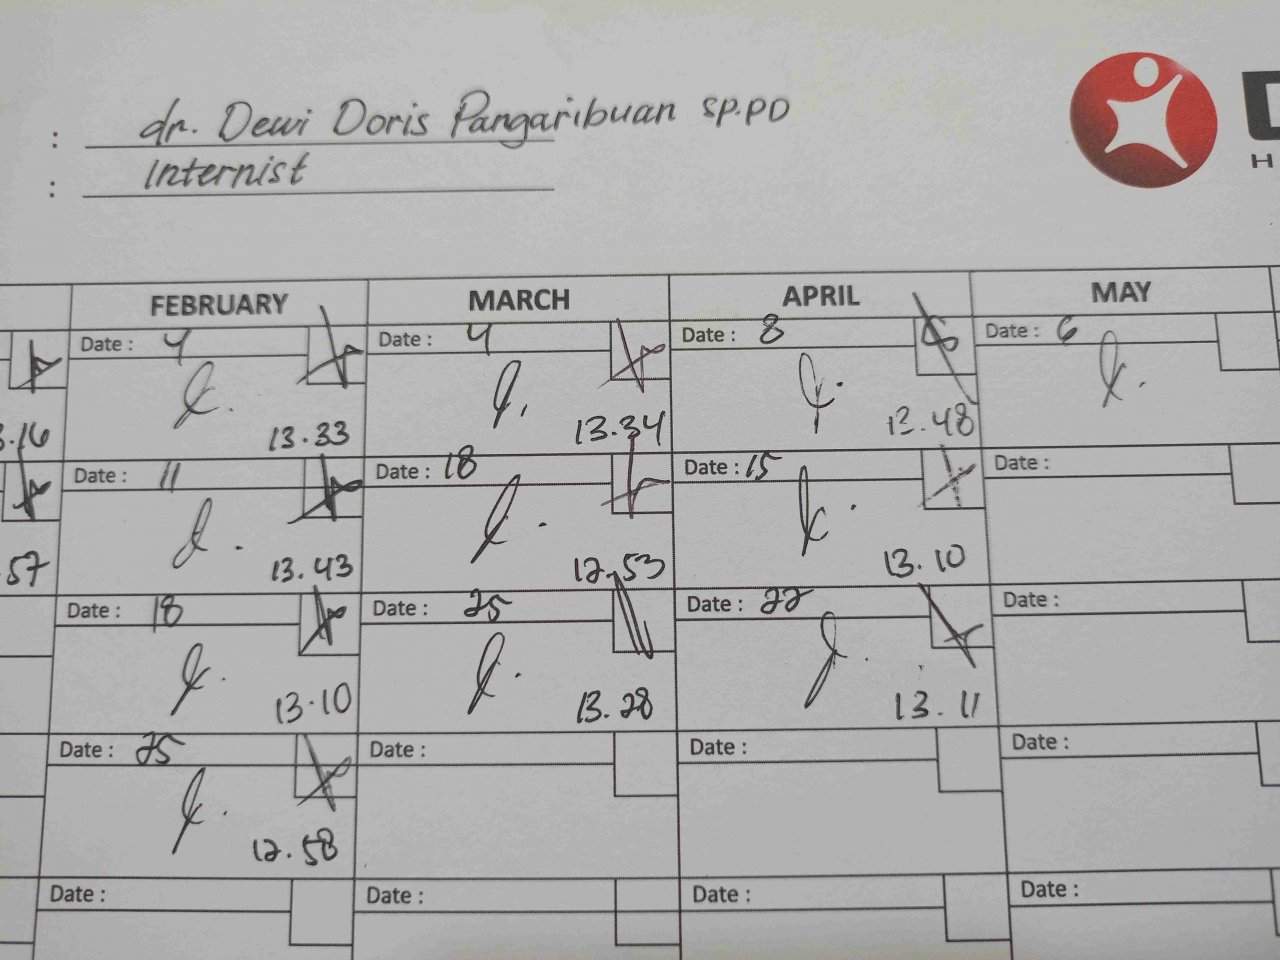 : dr. Dewi Doris Pangaribuan SP.PD
: Internist
D
H
FEBRUARY MARCH APRIL MAY
Date : 4 Date : 4 Date : 8 Date : 6
3.16 13.33 13.34 13.48
Date : 11 Date : 18 Date : 15 Date :
.57 13.43 12.53 13.10
Date : 18 Date : 25 Date : 22 Date :
13.10 13.28 13.11
Date : 25 Date : Date : Date :
12.58
Date : Date : Date : Date :